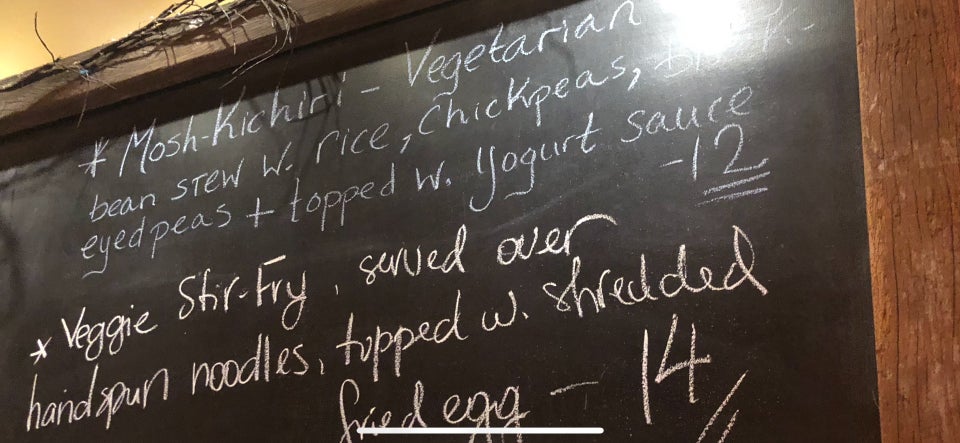 * Mosh-Kichiri - Vegetarian
bean STEW W. rice, Chickpeas, black-
eyedpeas + topped w. Yogurt sauce
-12
* Veggie Stir-Fry, served over
handspun noodles, topped w. shredded
fried egg - 14